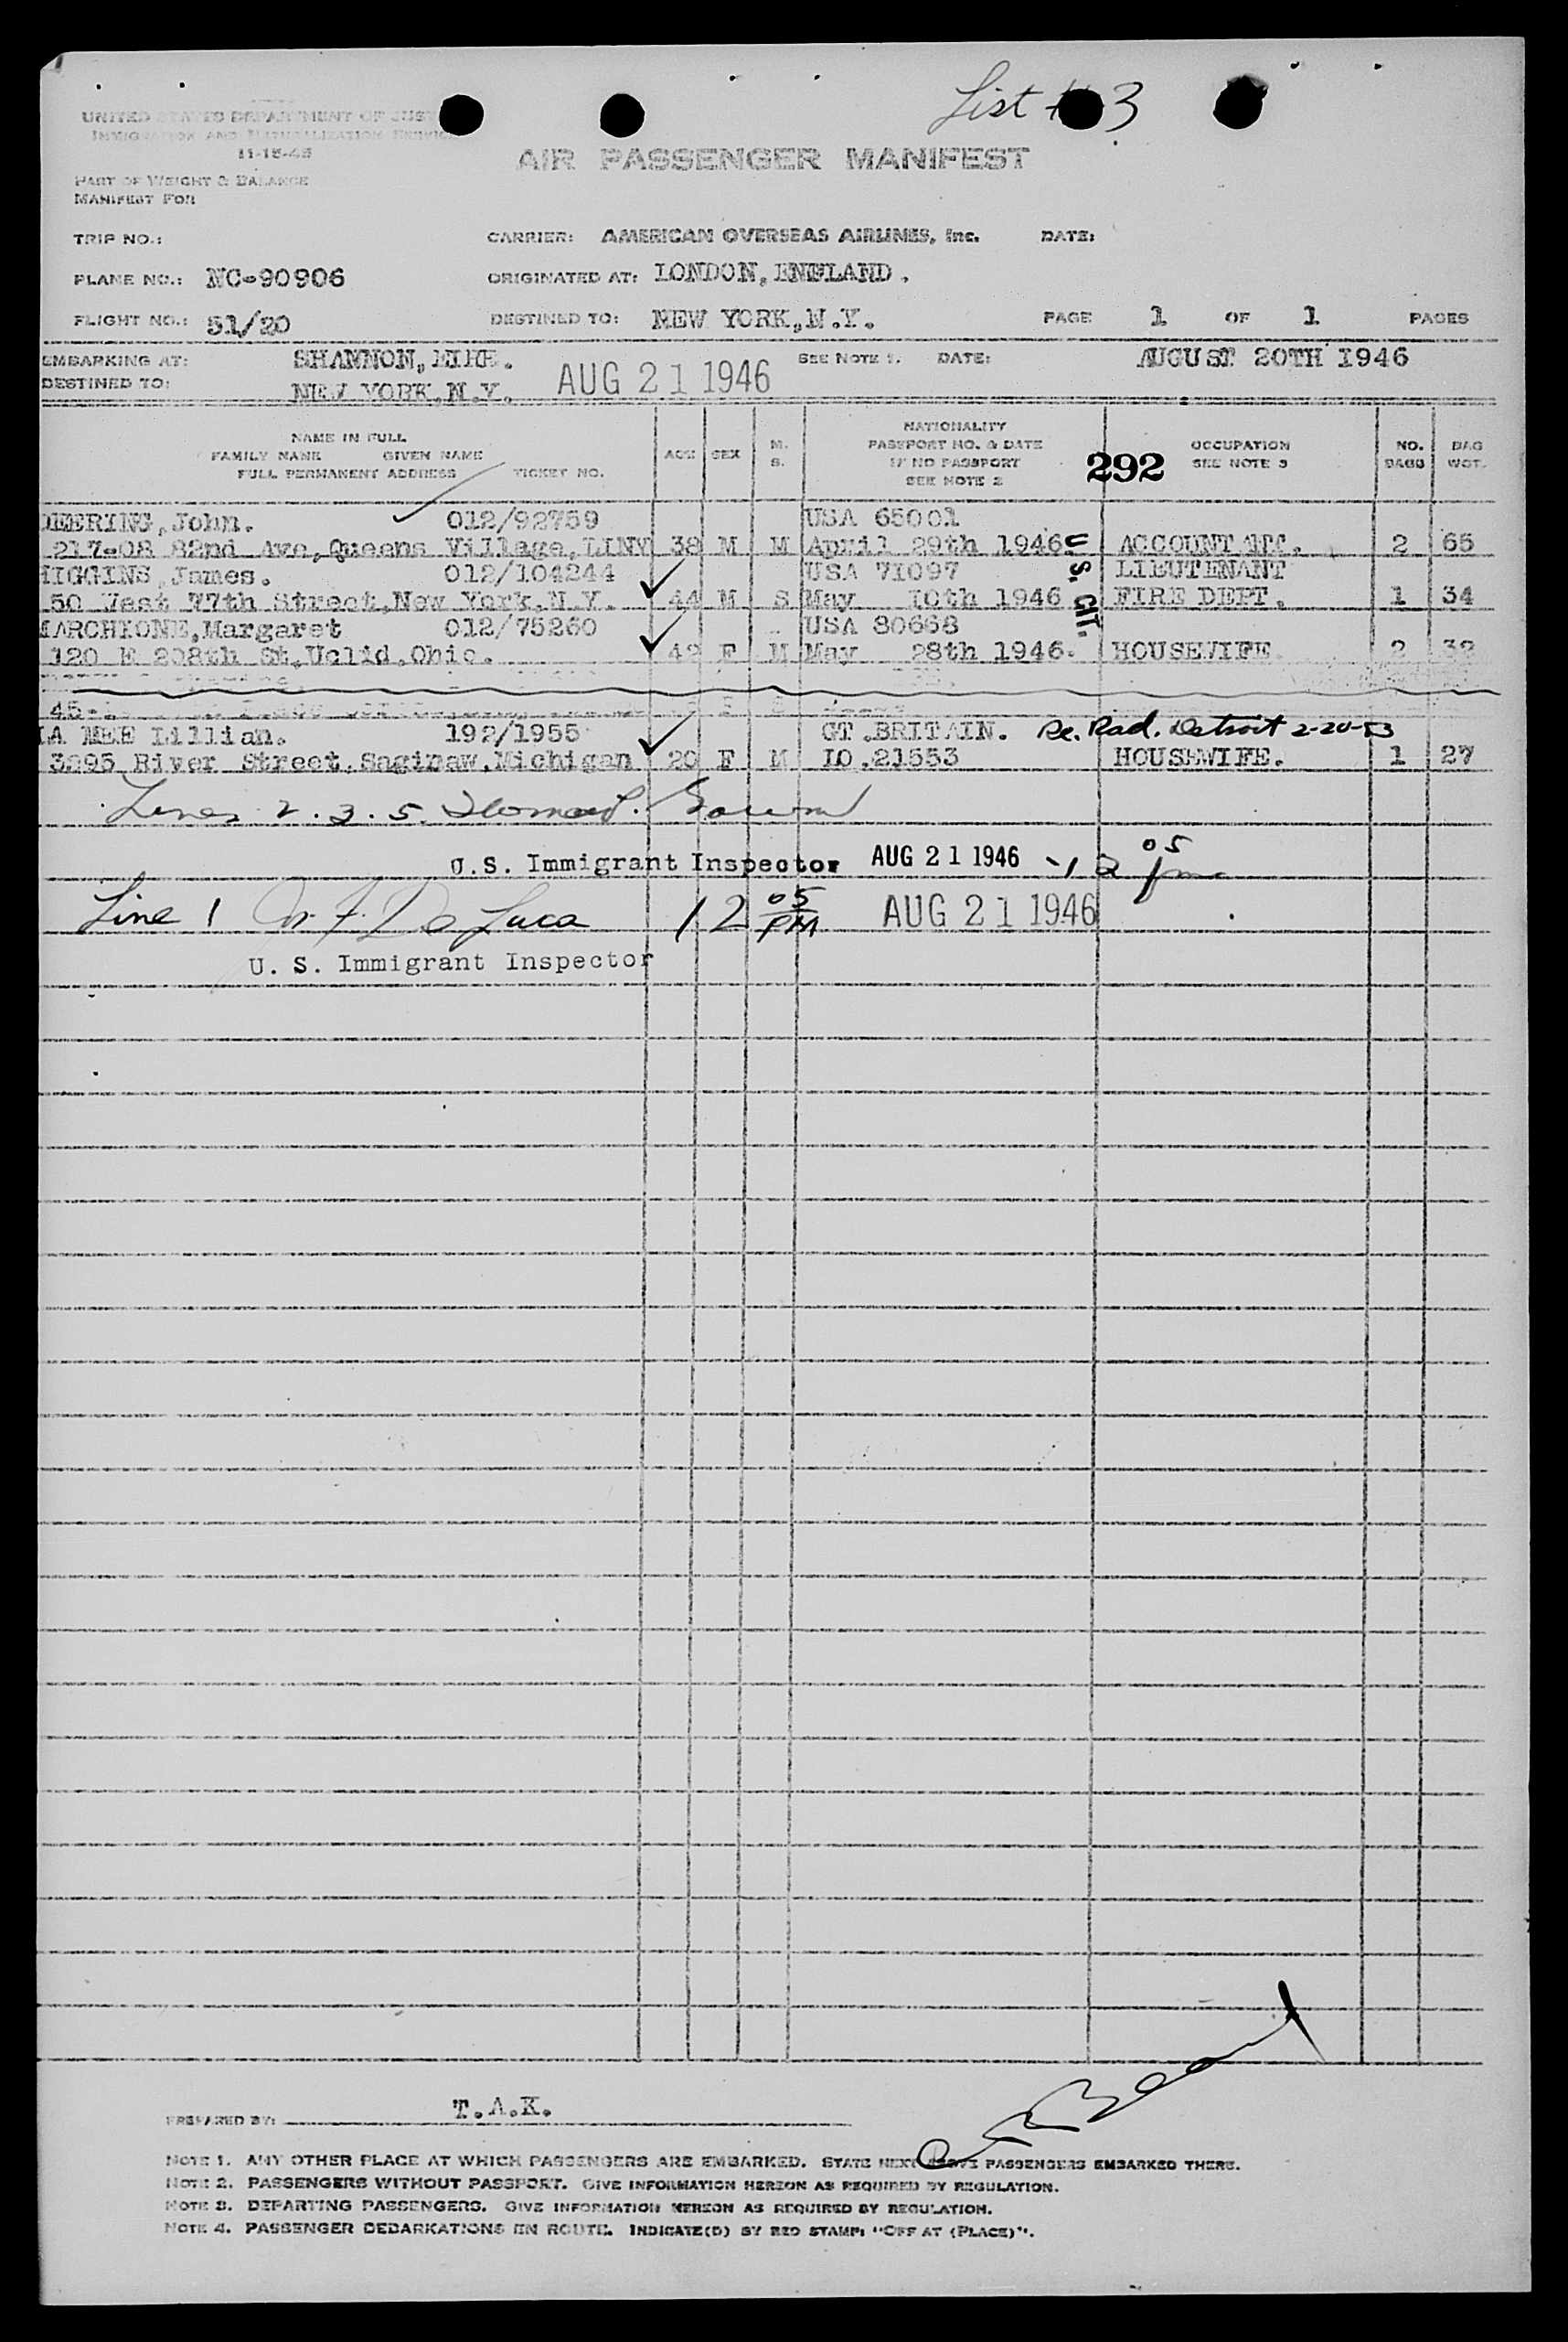 List # 3
UNITED STATES DEPARTMENT OF JUST
IMMIGRATION AND NATURALIZATION SERVICE
11-15-45
AIR PASSENGER MANIFEST
PART OF WEIGHT & BALANCE
MANIFEST FOR
TRIP NO.: CARRIER: AMERICAN OVERSEAS AIRLINES, Inc. DATE:
PLANE NO.: NC-90906 ORIGINATED AT: LONDON, ENGLAND.
FLIGHT NO.: 51/20 DESTINED TO: NEW YORK, N.Y. PAGE 1 OF 1 PAGES
EMBARKING AT: SHANNON, EIRE. SEE NOTE 1. DATE: AUGUST 20TH 1946
DESTINED TO: NEW YORK, N.Y. AUG 21 1946
NAME IN FULL
FAMILY NAME GIVEN NAME
FULL PERMANENT ADDRESS TICKET NO. AGE SEX M. S. NATIONALITY PASSPORT NO. & DATE IF NO PASSPORT SEE NOTE 2 292 OCCUPATION SEE NOTE 3 NO. BAGS BAG WGT.
DEERING, John. 012/92759 USA 65001
217-08 82nd Ave, Queens Village, LINY 38 M M April 29th 1946 ACCOUNTANT. 2 65
U.S. CIT.
HIGGINS, James. 012/104244 USA 71097 LIEUTENANT
50 West 77th Street, New York, N.Y. 44 M S May 10th 1946 FIRE DEPT. 1 34
MARCHIONE, Margaret 012/75260 USA 80668
120 E 208th St, Uclid, Ohio. 42 F M May 28th 1946. HOUSEWIFE. 2 32
45-
LA MEE Lillian. 192/1955 GT.BRITAIN. Re. Rad. Detroit 2-20-53
3295 River Street, Saginaw, Michigan 20 F M IO.21553 HOUSEWIFE. 1 27
Lines 2. 3. 5.
U.S. Immigrant Inspector AUG 21 1946 12 05 pm
Line 1 De Luca 12 05 PM AUG 21 1946
U. S. Immigrant Inspector
PREPARED BY: T.A.K.
NOTE 1. ANY OTHER PLACE AT WHICH PASSENGERS ARE EMBARKED. STATE NEXT ABOVE PASSENGERS EMBARKED THERE.
NOTE 2. PASSENGERS WITHOUT PASSPORT. GIVE INFORMATION HEREON AS REQUIRED BY REGULATION.
NOTE 3. DEPARTING PASSENGERS. GIVE INFORMATION HEREON AS REQUIRED BY REGULATION.
NOTE 4. PASSENGER DEBARKATIONS EN ROUTE. INDICATE(D) BY RED STAMP: "OFF AT (PLACE)".